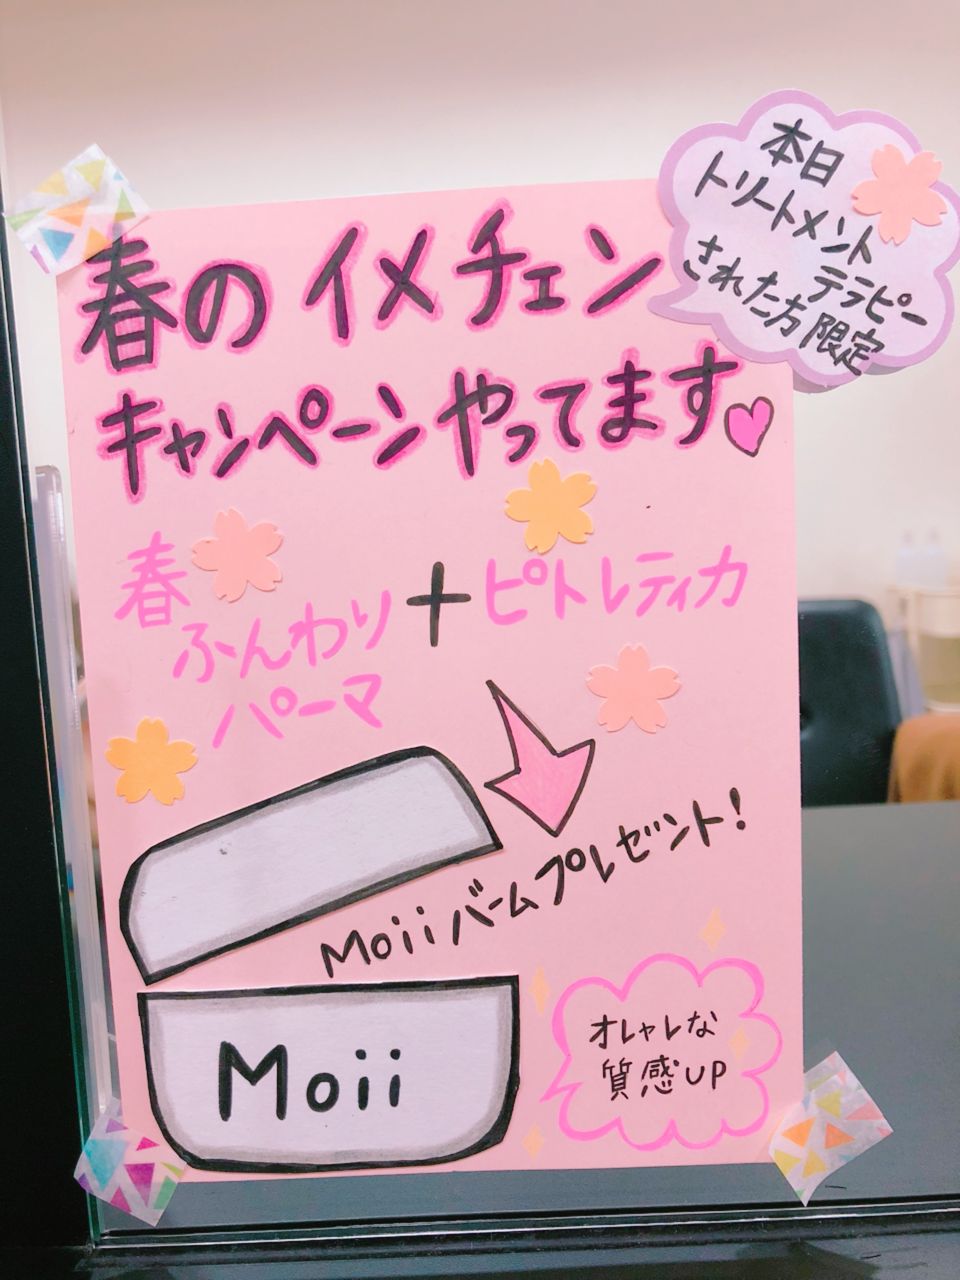 本日
トリートメント
テラピー
された方限定
春のイメチェン
キャンペーンやってます
春
ふんわり
パーマ
+
ピトレティカ
Moiiバームプレゼント!
Moii
オシャレな
質感UP